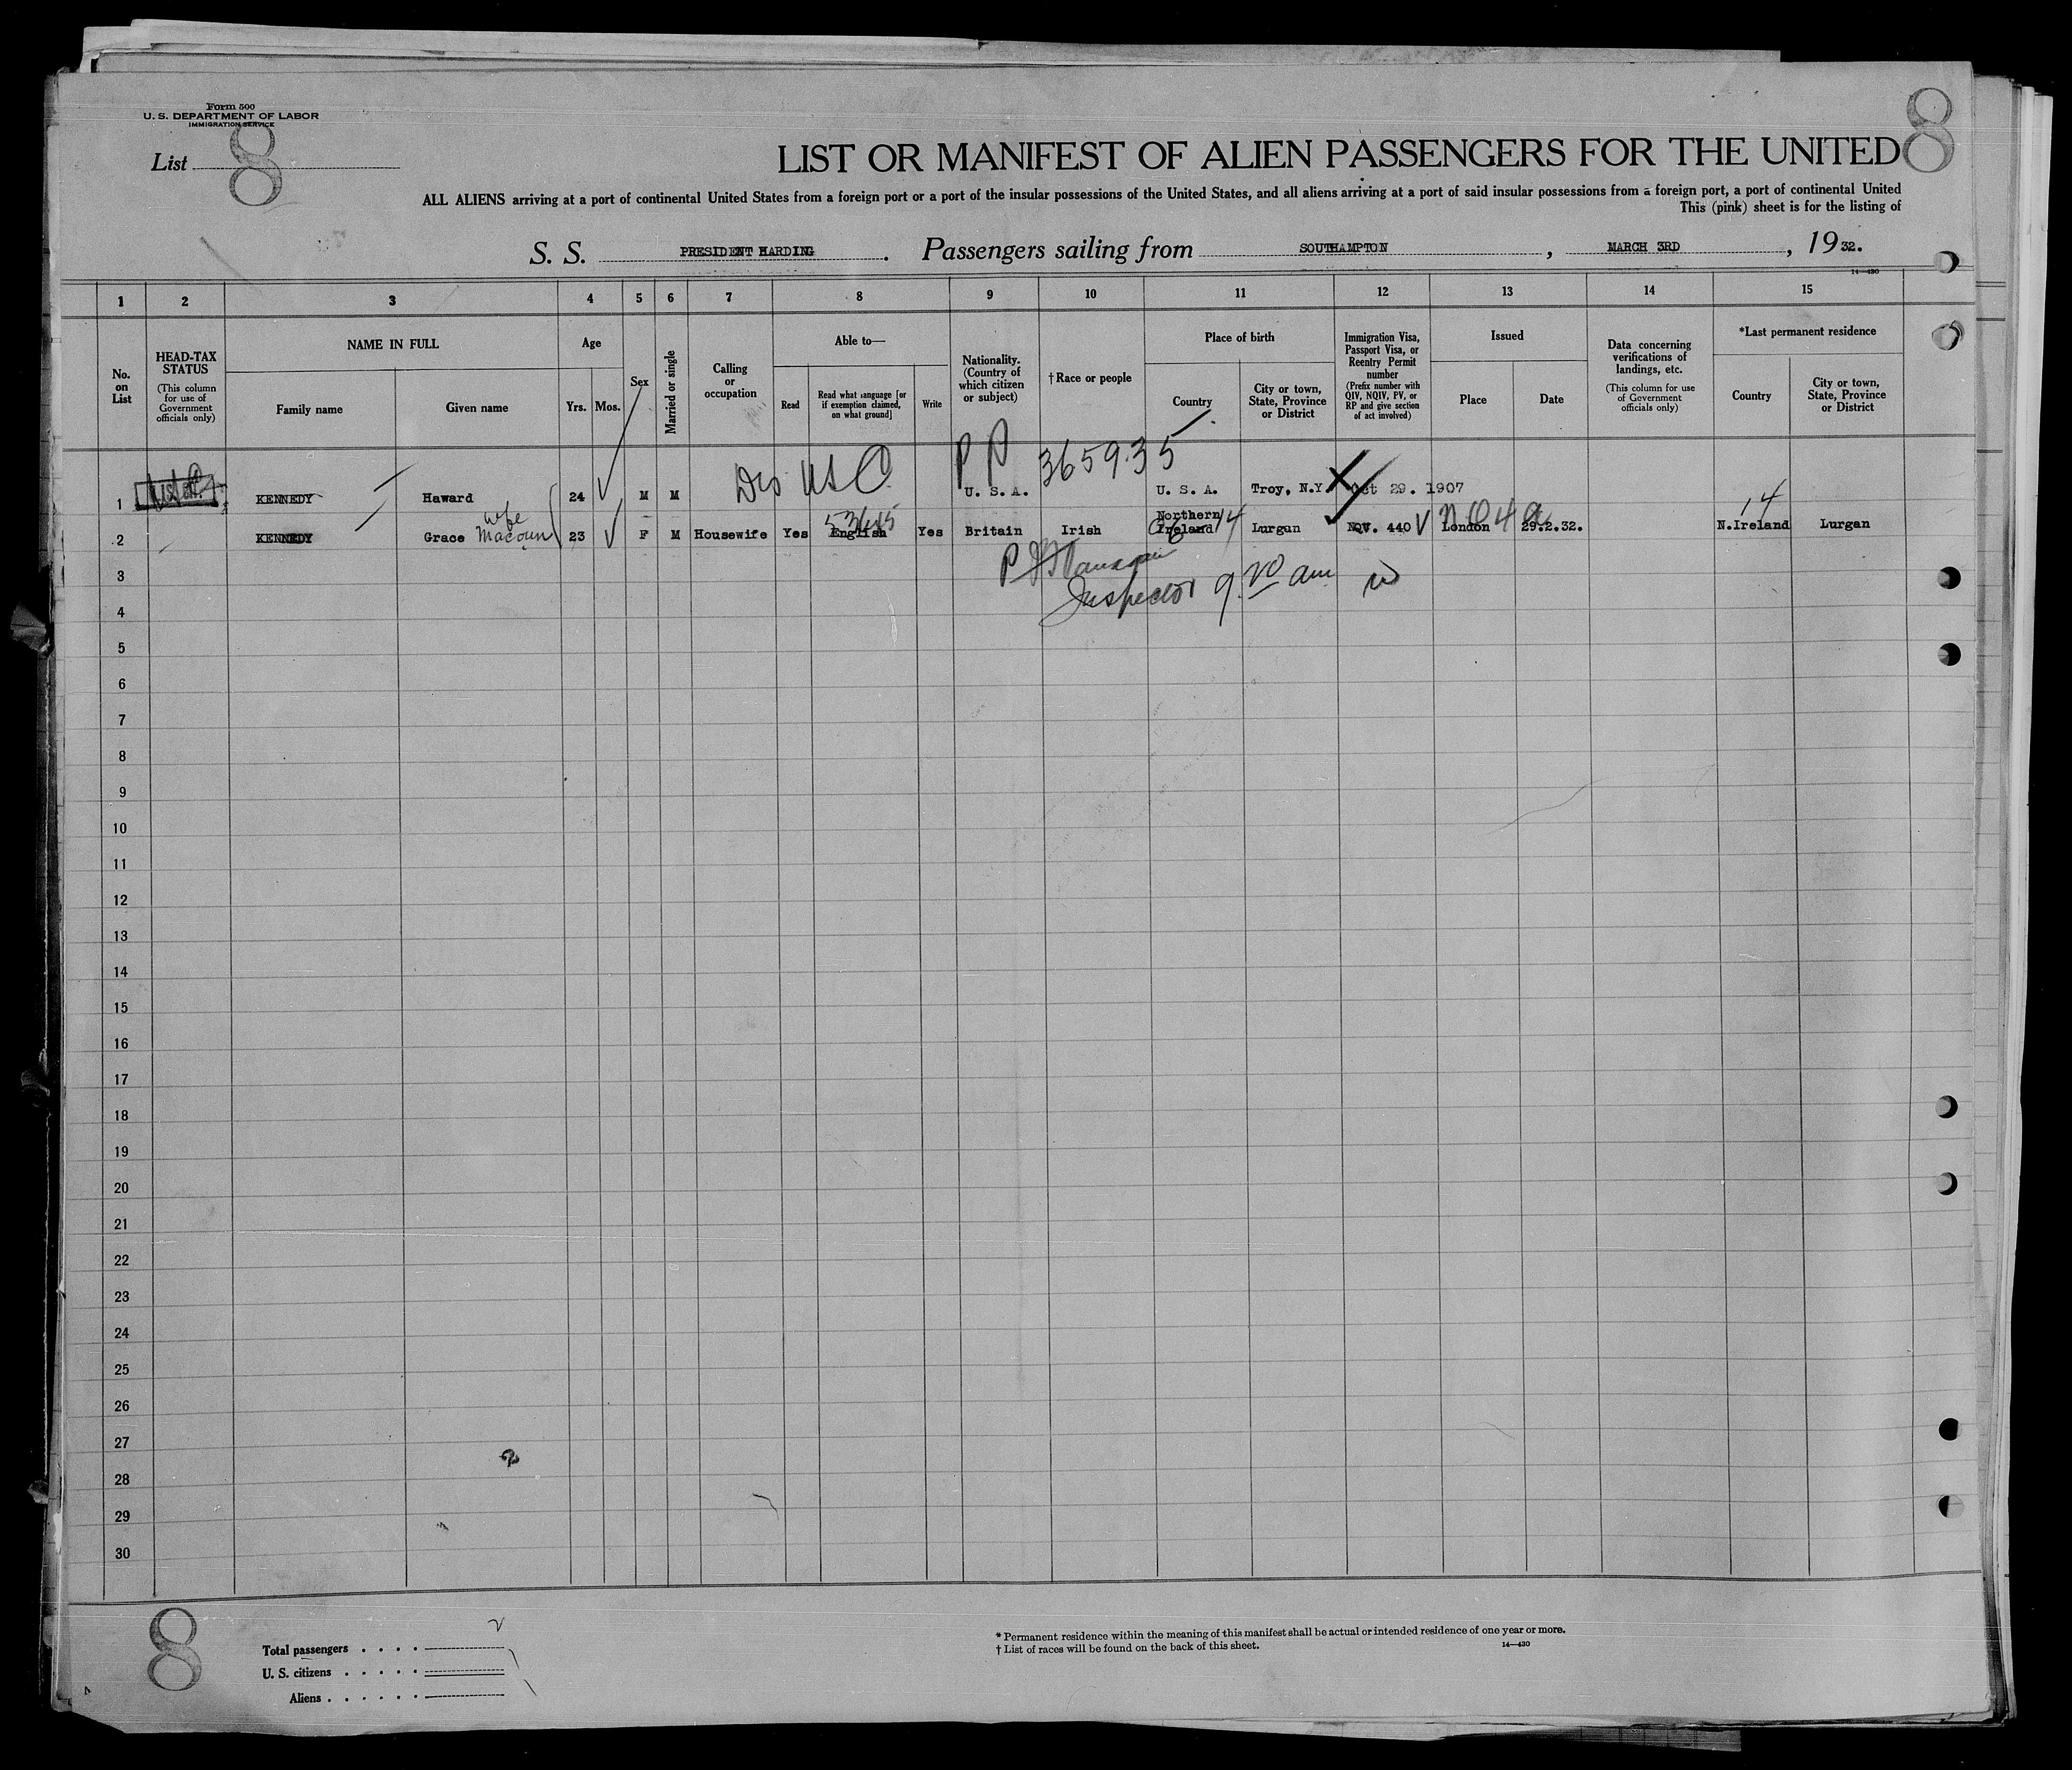 Form 500
U. S. DEPARTMENT OF LABOR
IMMIGRATION SERVICE
List 8
8
LIST OR MANIFEST OF ALIEN PASSENGERS FOR THE UNITED
ALL ALIENS arriving at a port of continental United States from a foreign port or a port of the insular possessions of the United States, and all aliens arriving at a port of said insular possessions from a foreign port, a port of continental United
This (pink) sheet is for the listing of
S. S. PRESIDENT HARDING. Passengers sailing from SOUTHAMPTON, MARCH 3RD, 1932.
14—430
1 2 3 4 5 6 7 8 9 10 11 12 13 14 15
No. on List
HEAD-TAX STATUS
(This column for use of Government officials only)
NAME IN FULL
Family name
Given name
Age
Yrs.
Mos.
Sex
Married or single
Calling or occupation
Able to—
Read
Read what language [or if exemption claimed, on what ground]
Write
Nationality. (Country of which citizen or subject)
†Race or people
Place of birth
Country
City or town, State, Province or District
Immigration Visa, Passport Visa, or Reentry Permit number
(Prefix number with QIV, NQIV, PV, or RP and give section of act involved)
Issued
Place
Date
Data concerning verifications of landings, etc.
(This column for use of Government officials only)
*Last permanent residence
Country
City or town, State, Province or District
PP 365935
1 KENNEDY Haward 24 M M USC U. S. A. U. S. A. Troy, N.Y Oct 29. 1907
wife
14
2 KENNEDY Grace Macoun 23 F M Housewife Yes English Yes Britain Irish Northern Ireland Lurgan NQV. 440 London 29.2.32. N.Ireland Lurgan
3
Inspector 9 20 am
4
5
6
7
8
9
10
11
12
13
14
15
16
17
18
19
20
21
22
23
24
25
26
27
28
29
30
8
Total passengers . . . . 2
U. S. citizens . . . . .
Aliens . . . . . .
* Permanent residence within the meaning of this manifest shall be actual or intended residence of one year or more.
† List of races will be found on the back of this sheet.
14—430